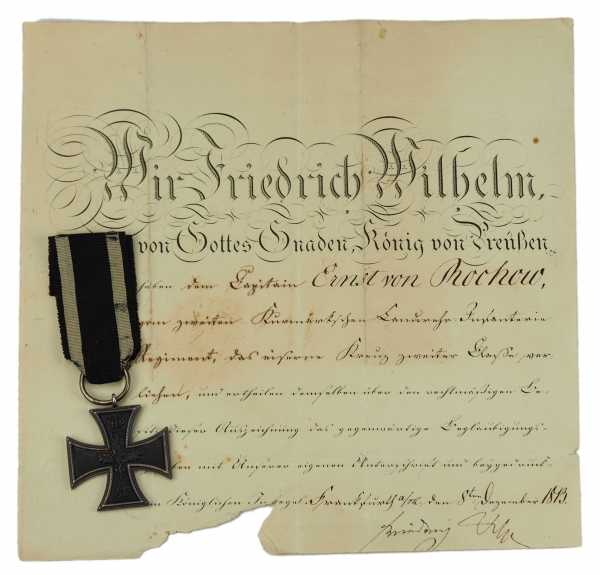 Wir Friedrich Wilhelm,
von Gottes Gnaden, König von Preußen
haben dem Capitain Ernst von Rochow,
zweiten Kurmärkschen Landwehr-Infanterie
Regiment, das eiserne Kreuz zweiter Classe ver-
liehen, und ertheilen demselben über den rechtmäßigen Be-
dieser Auszeichnung das gegenwärtige Beglaubigungs-
mit Unserer eigenen Unterschrift und beygedruck-
Königlichen Insiegel. Frankfurth a/M. den 8ten Dezember 1813.